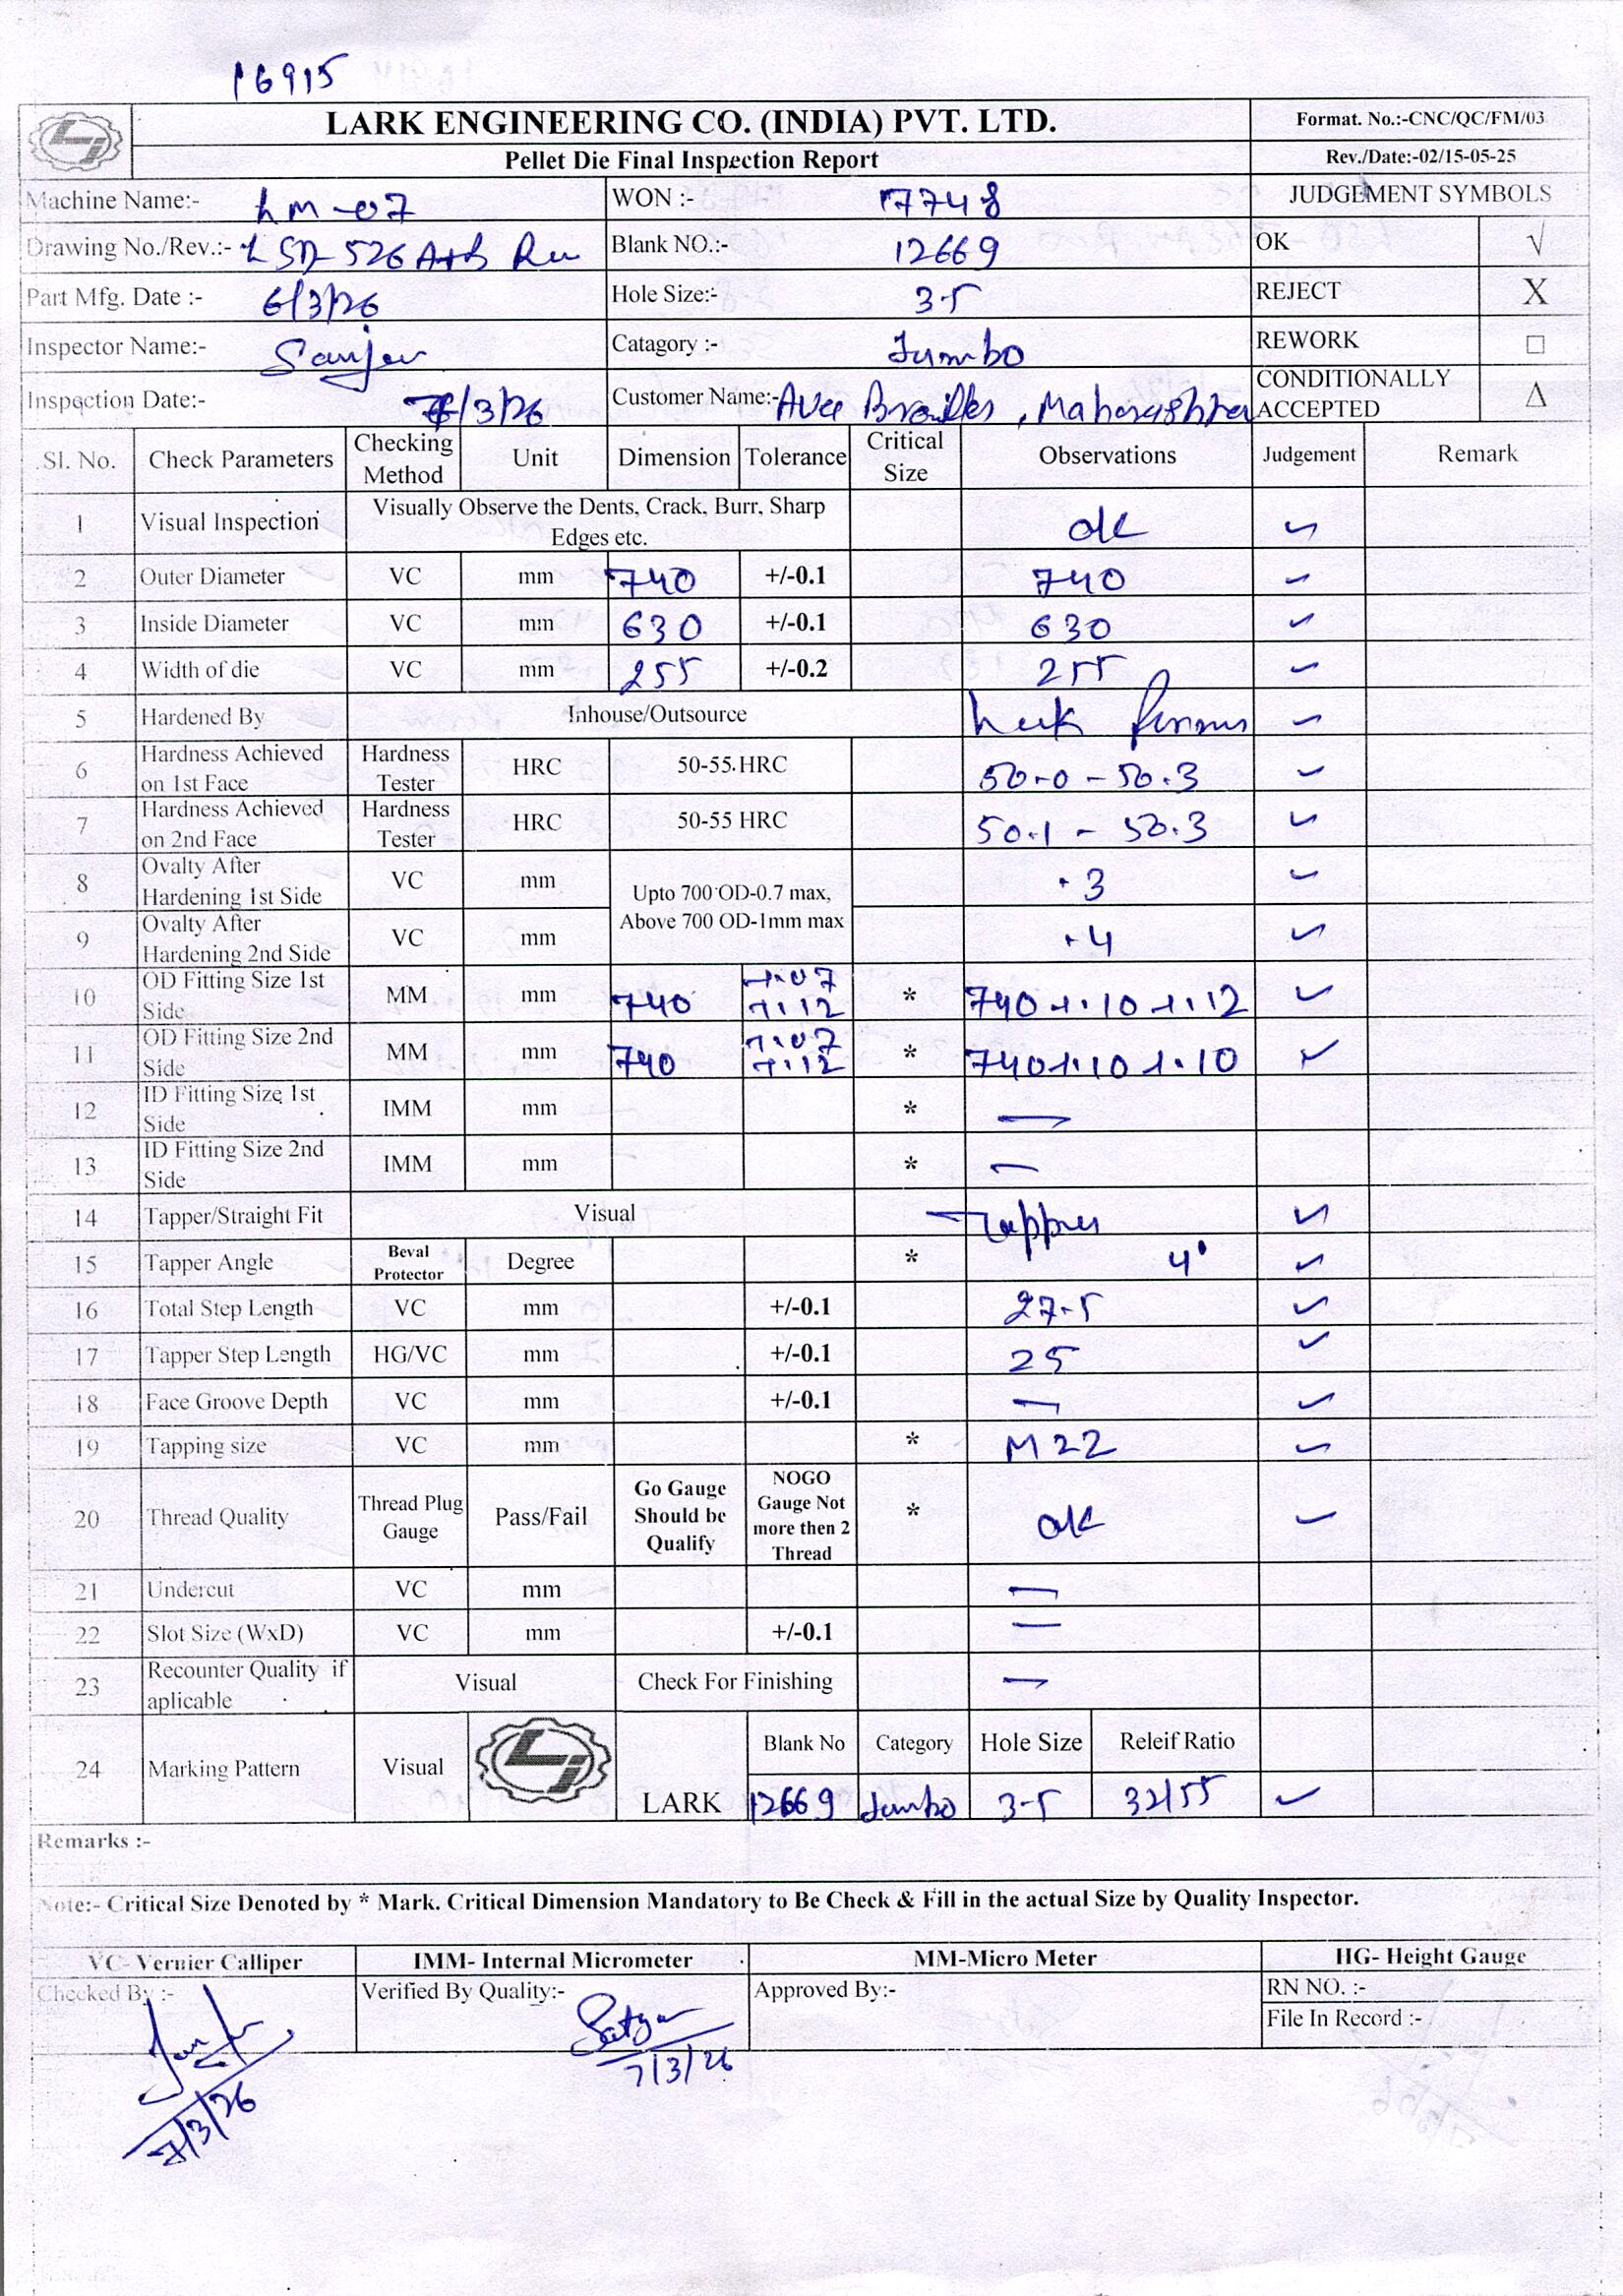 16915
LARK ENGINEERING CO. (INDIA) PVT. LTD.
Format. No.:-CNC/QC/FM/03
Pellet Die Final Inspection Report
Rev./Date:-02/15-05-25
Machine Name:- LM-07 WON :- 17748 JUDGEMENT SYMBOLS
Drawing No./Rev.:- LSD-526 Blank NO.:- 12669 OK √
Part Mfg. Date :- 6/3/26 Hole Size:- 3.5 REJECT X
Inspector Name:- Sanjev Catagory :- Jumbo REWORK □
Inspection Date:- 7/3/26 Customer Name:- Maharashtra CONDITIONALLY ACCEPTED Δ
Sl. No. Check Parameters Checking Method Unit Dimension Tolerance Critical Size Observations Judgement Remark
1 Visual Inspection Visually Observe the Dents, Crack, Burr, Sharp Edges etc. ok ✓
2 Outer Diameter VC mm 740 +/-0.1 740 ✓
3 Inside Diameter VC mm 630 +/-0.1 630 ✓
4 Width of die VC mm 255 +/-0.2 255 ✓
5 Hardened By Inhouse/Outsource ✓
6 Hardness Achieved on 1st Face Hardness Tester HRC 50-55 HRC 50.0 - 50.3 ✓
7 Hardness Achieved on 2nd Face Hardness Tester HRC 50-55 HRC 50.1 - 50.3 ✓
8 Ovalty After Hardening 1st Side VC mm Upto 700 OD-0.7 max, Above 700 OD-1mm max .3 ✓
9 Ovalty After Hardening 2nd Side VC mm .4 ✓
10 OD Fitting Size 1st Side MM mm 740 +.07 +.12 * 740 +.10 +.12 ✓
11 OD Fitting Size 2nd Side MM mm 740 +.07 +.12 * 740 +.10 +.10 ✓
12 ID Fitting Size 1st Side IMM mm * —
13 ID Fitting Size 2nd Side IMM mm * —
14 Tapper/Straight Fit Visual Tapper ✓
15 Tapper Angle Beval Protector Degree * 4° ✓
16 Total Step Length VC mm +/-0.1 27.5 ✓
17 Tapper Step Length HG/VC mm +/-0.1 25 ✓
18 Face Groove Depth VC mm +/-0.1 — ✓
19 Tapping size VC mm * M22 ✓
20 Thread Quality Thread Plug Gauge Pass/Fail Go Gauge Should be Qualify NOGO Gauge Not more then 2 Thread * ok ✓
21 Undercut VC mm —
22 Slot Size (WxD) VC mm +/-0.1 —
23 Recounter Quality if aplicable Visual Check For Finishing —
24 Marking Pattern Visual LARK Blank No Category Hole Size Releif Ratio
12669 Jumbo 3.5 32/55 ✓
Remarks :-
Note:- Critical Size Denoted by * Mark. Critical Dimension Mandatory to Be Check & Fill in the actual Size by Quality Inspector.
VC- Vernier Calliper IMM- Internal Micrometer MM-Micro Meter HG- Height Gauge
Checked By :- Verified By Quality:- Approved By:- RN NO. :-
File In Record :-
7/3/26
7/3/26